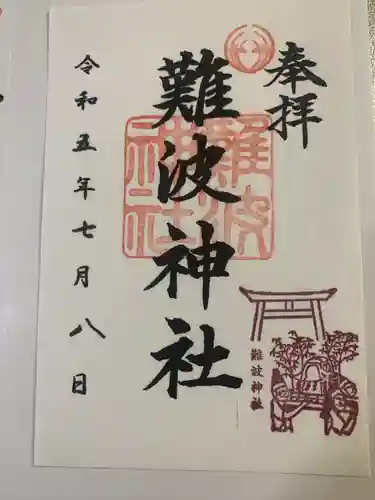 奉拝
難波神社
難波
神社
難波神社
令和五年七月八日